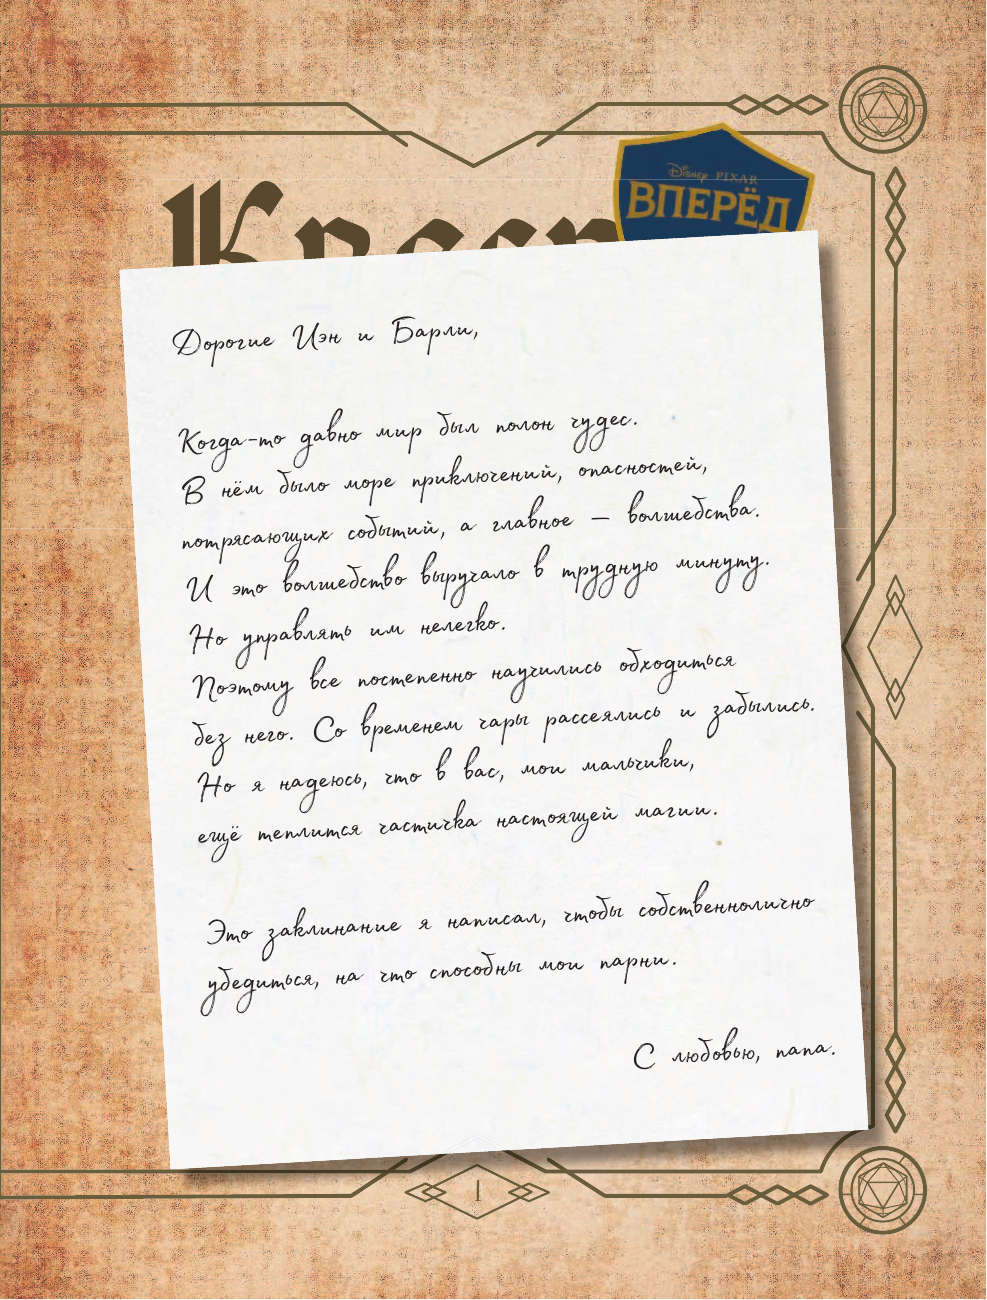 Disney PIXAR
ВПЕРЁД
Дорогие Иэн и Барли,
Когда-то давно мир был полон чудес.
В нём было море приключений, опасностей,
потрясающих событий, а главное — волшебства.
И это волшебство выручало в трудную минуту.
Но управлять им нелегко.
Поэтому все постепенно научились обходиться
без него. Со временем чары рассеялись и забылись.
Но я надеюсь, что в вас, мои мальчики,
ещё теплится частичка настоящей магии.
Это заклинание я написал, чтобы собственнолично
убедиться, на что способны мои парни.
С любовью, папа.
1